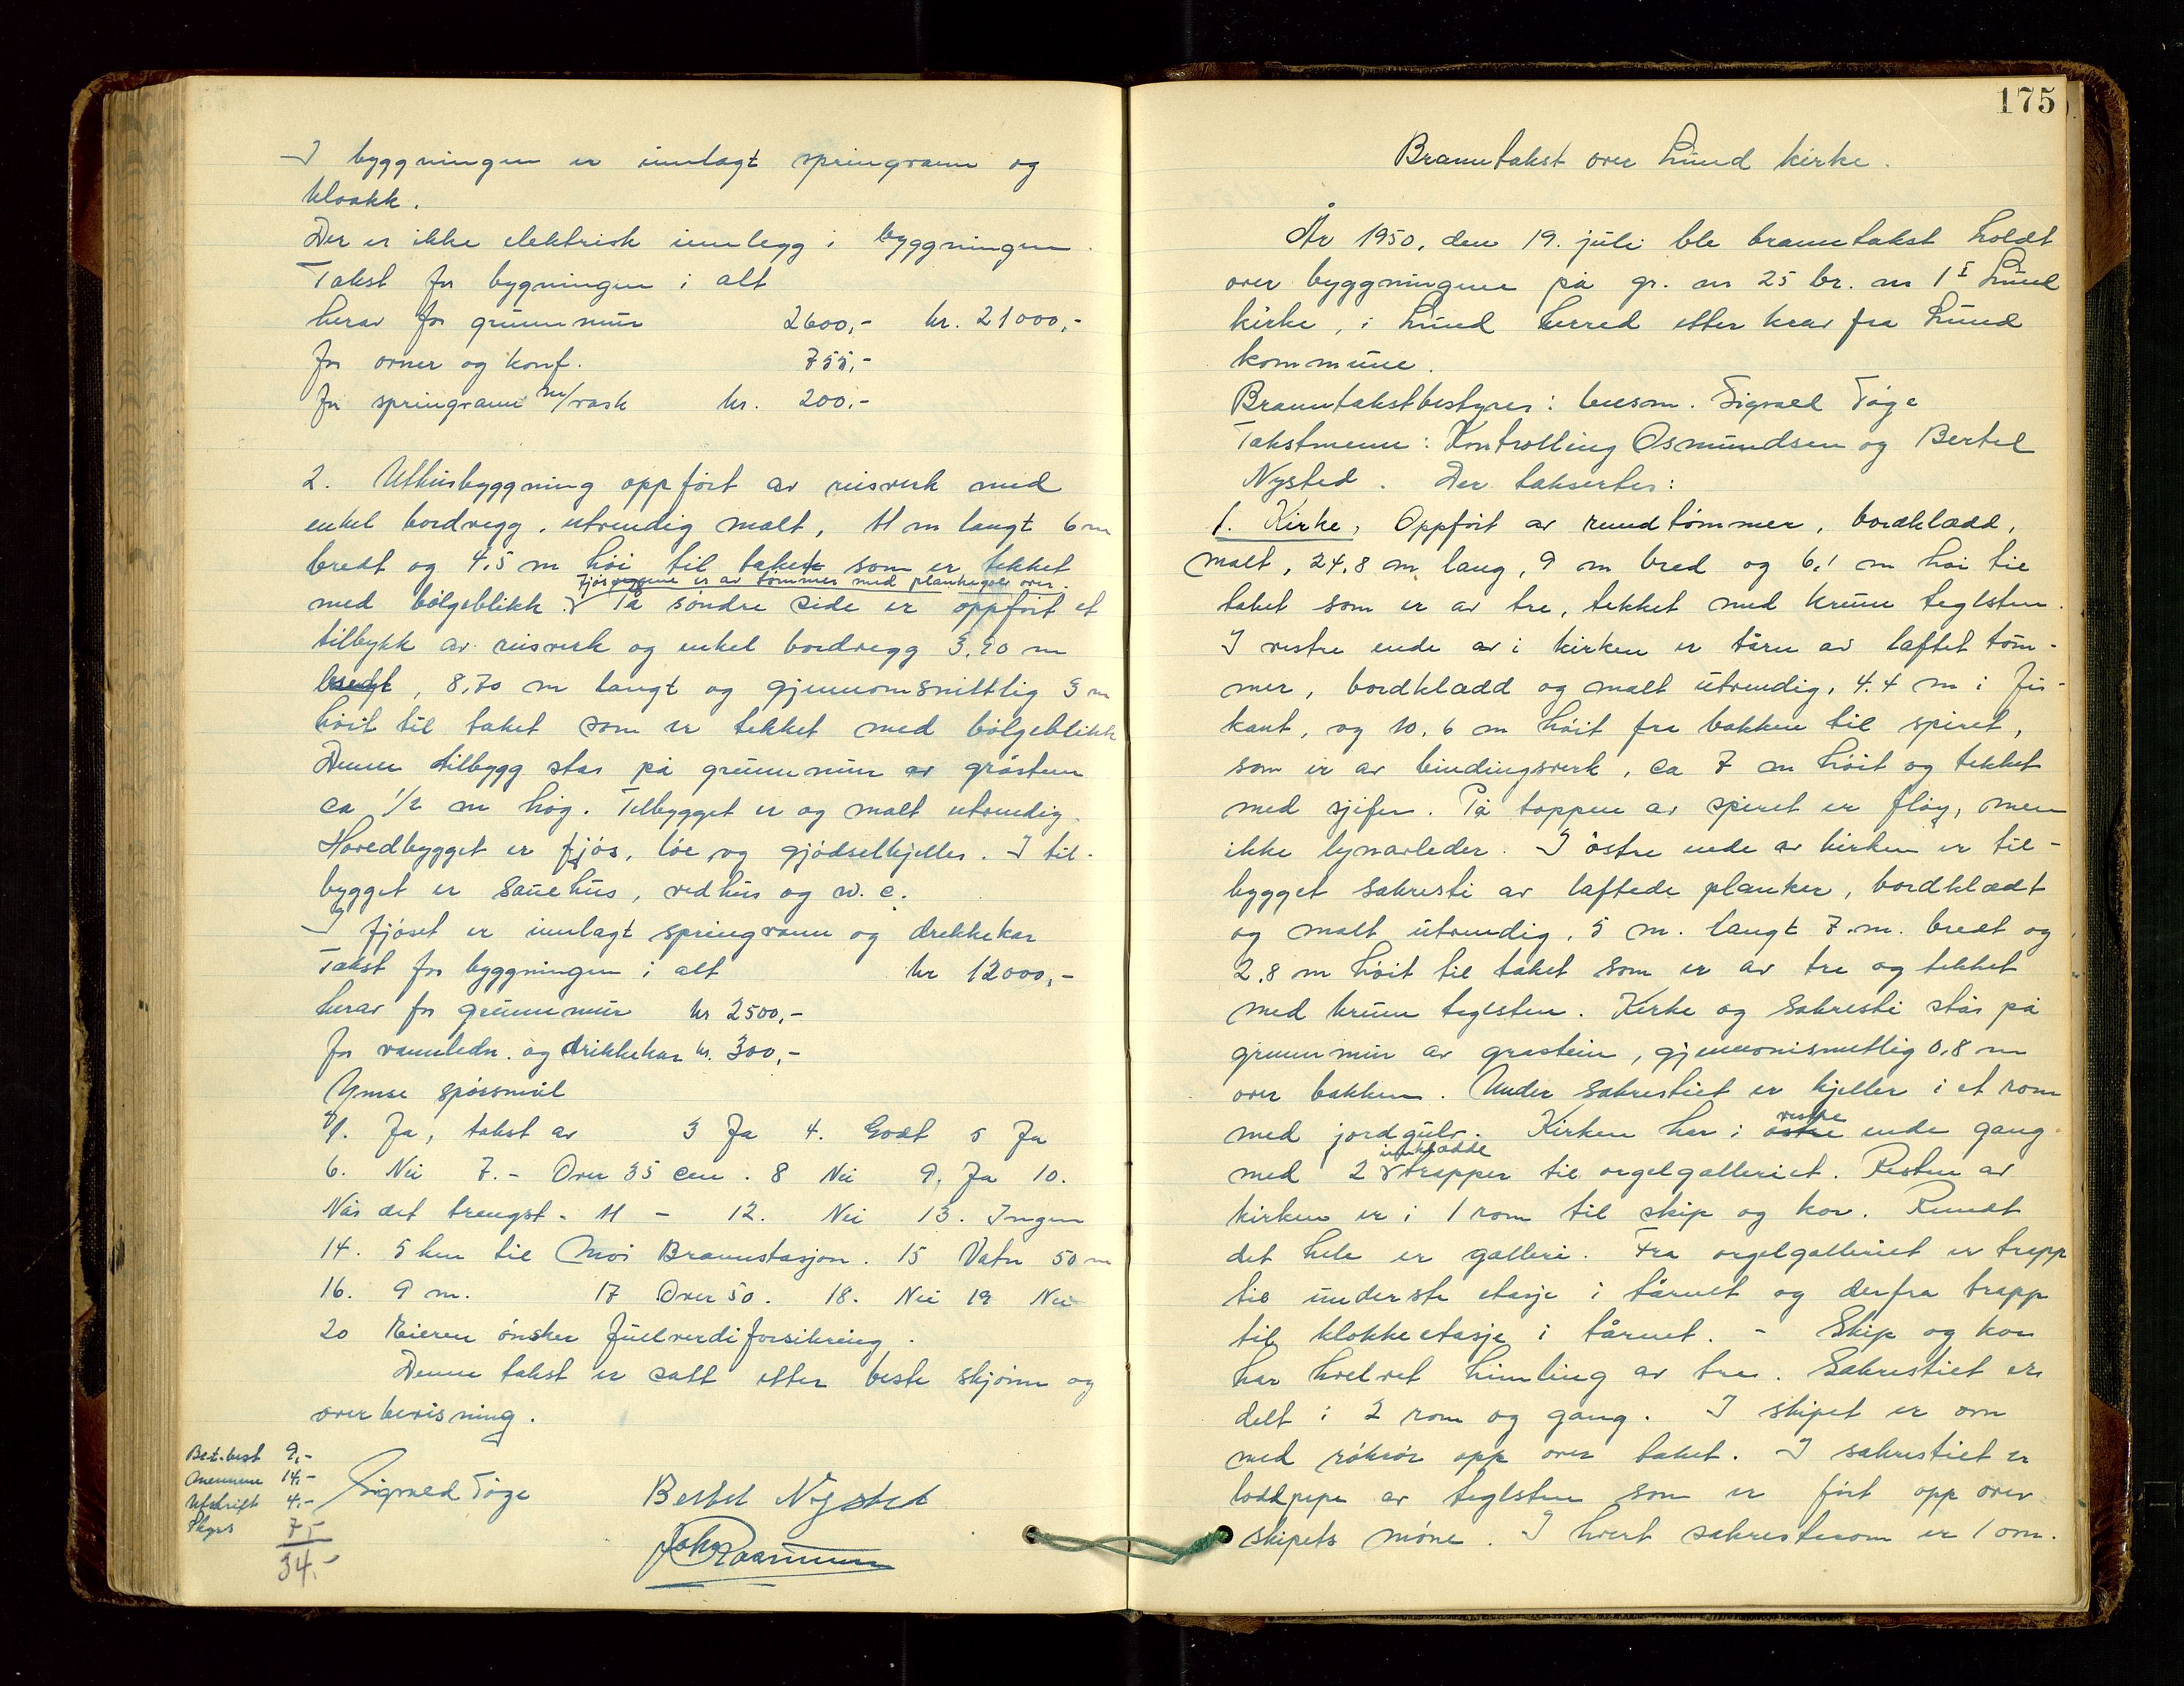 I byggningen er innlagt springvann og
kloakk.
Der er ikke elektrisk innlegg i byggningen.
Takst for bygningen i alt
herav for grunnmur 2600,- kr. 21000,-
for ovner og komf. 755,-
for springvann m/vask kr. 200,-
2. Uthusbyggning oppført av reisverk med
enkel bordvegg, utvendig malt, 11 m langt 6 m
bredt og 4,5 m høi til taket som er tekket
fjøsveggene er av tømmer med plankegolv over.
med bølgeblikk. På søndre side er oppført et
tilbykk av reisverk og enkel bordvegg 3,90 m
bredt, 8,70 m langt og gjennomsnittlig 3 m
høit til taket som er tekket med bølgeblikk
Denne tilbygg står på grunnmur av gråsten
ca 1/2 m høg. Tilbygget er og malt utvendig.
Hovedbygget er fjøs, løe og gjødselkjeller. I til-
bygget er sauehus, vedhus og w. c.
I fjøset er innlagt springvann og drekkekar
Takst for byggningen i alt kr 12000,-
herav for grunnmur kr 2500,-
for vannledn. og drikkekar kr. 300,-
Ymse spørsmål
1. Ja, takst av 3 Ja 4. Godt 5 Ja
6. Nei 7. - Over 35 cm. 8 Nei 9. Ja 10.
Når det trengst. 11 - 12. Nei 13. Ingen
14. 5 km til Moi Brannstasjon. 15 Vatn 50 m
16. 9 m. 17 Over 50. 18. Nei 19 Nei
20 Eieren ønsker fullverdiforsikring.
Denne takst er satt etter beste skjønn og
overbevisning.
Br.t.best 9,-
Mennene 14,-
Utskrift 4,-
Skyss 7,-
34,-
Sigvald Tåge Bertel Nysted
175
Branntakst over Lund kirke.
År 1950, den 19. juli ble branntakst holdt
over byggningene på gr. nr 25 br. nr 1 I Lund
kirke, i Lund herred etter krav fra Lund
kommune.
Branntakstbestyrer: lensm. Sigvald Tåge
Takstmenn: Kontrolling Osmundsen og Bertel
Nysted. Der taksertes:
1. Kirke, Oppført av rundtømmer, bordklædd,
malt, 24,8 m lang, 9 m bred og 6,1 m høi til
taket som er av tre, tekket med krum teglsten.
I vestre ende av i kirken er tårn av laftet tøm-
mer, bordklædd og malt utvendig, 4.4 m i fir-
kant, og 10,6 m høit fra bakken til spiret,
som er av bindingsverk, ca 7 m høit og tekket
med sjifer. På toppen av spiret er fløy, men
ikke lynavleder. I østre ende av kirken er til-
bygget sakresti av laftede planker, bordklædt
og malt utvendig, 5 m. langt 7.m. bredt og
2,8 m høit til taket som er av tre og tekket
med krum teglsten. Kirke og sakresti står på
grunnmur av grastein, gjennomsnitlig 0,8 m
over bakken. Under sakrestiet er kjeller i et rom
med jordgulv. Kirken har i østre vestre ende gang
med 2 innklædde trapper til orgelgalleriet. Resten av
kirken er i 1 rom til skip og kor. Rundt
det hele er galleri. Fra orgelgalleriet er trapp
til underste etasje i tårnet og derfra trapp
til klokkeetasje i tårnet. - Skip og kor
har hvelvet himling av tre. Sakrestiet er
delt i 2 rom og gang. I skipet er ovn
med røkrør opp over taket. I sakrestiet er
loddpipe av teglsten som er ført opp over
skipets møne. I hvert sakrestirom er 1 ovn.